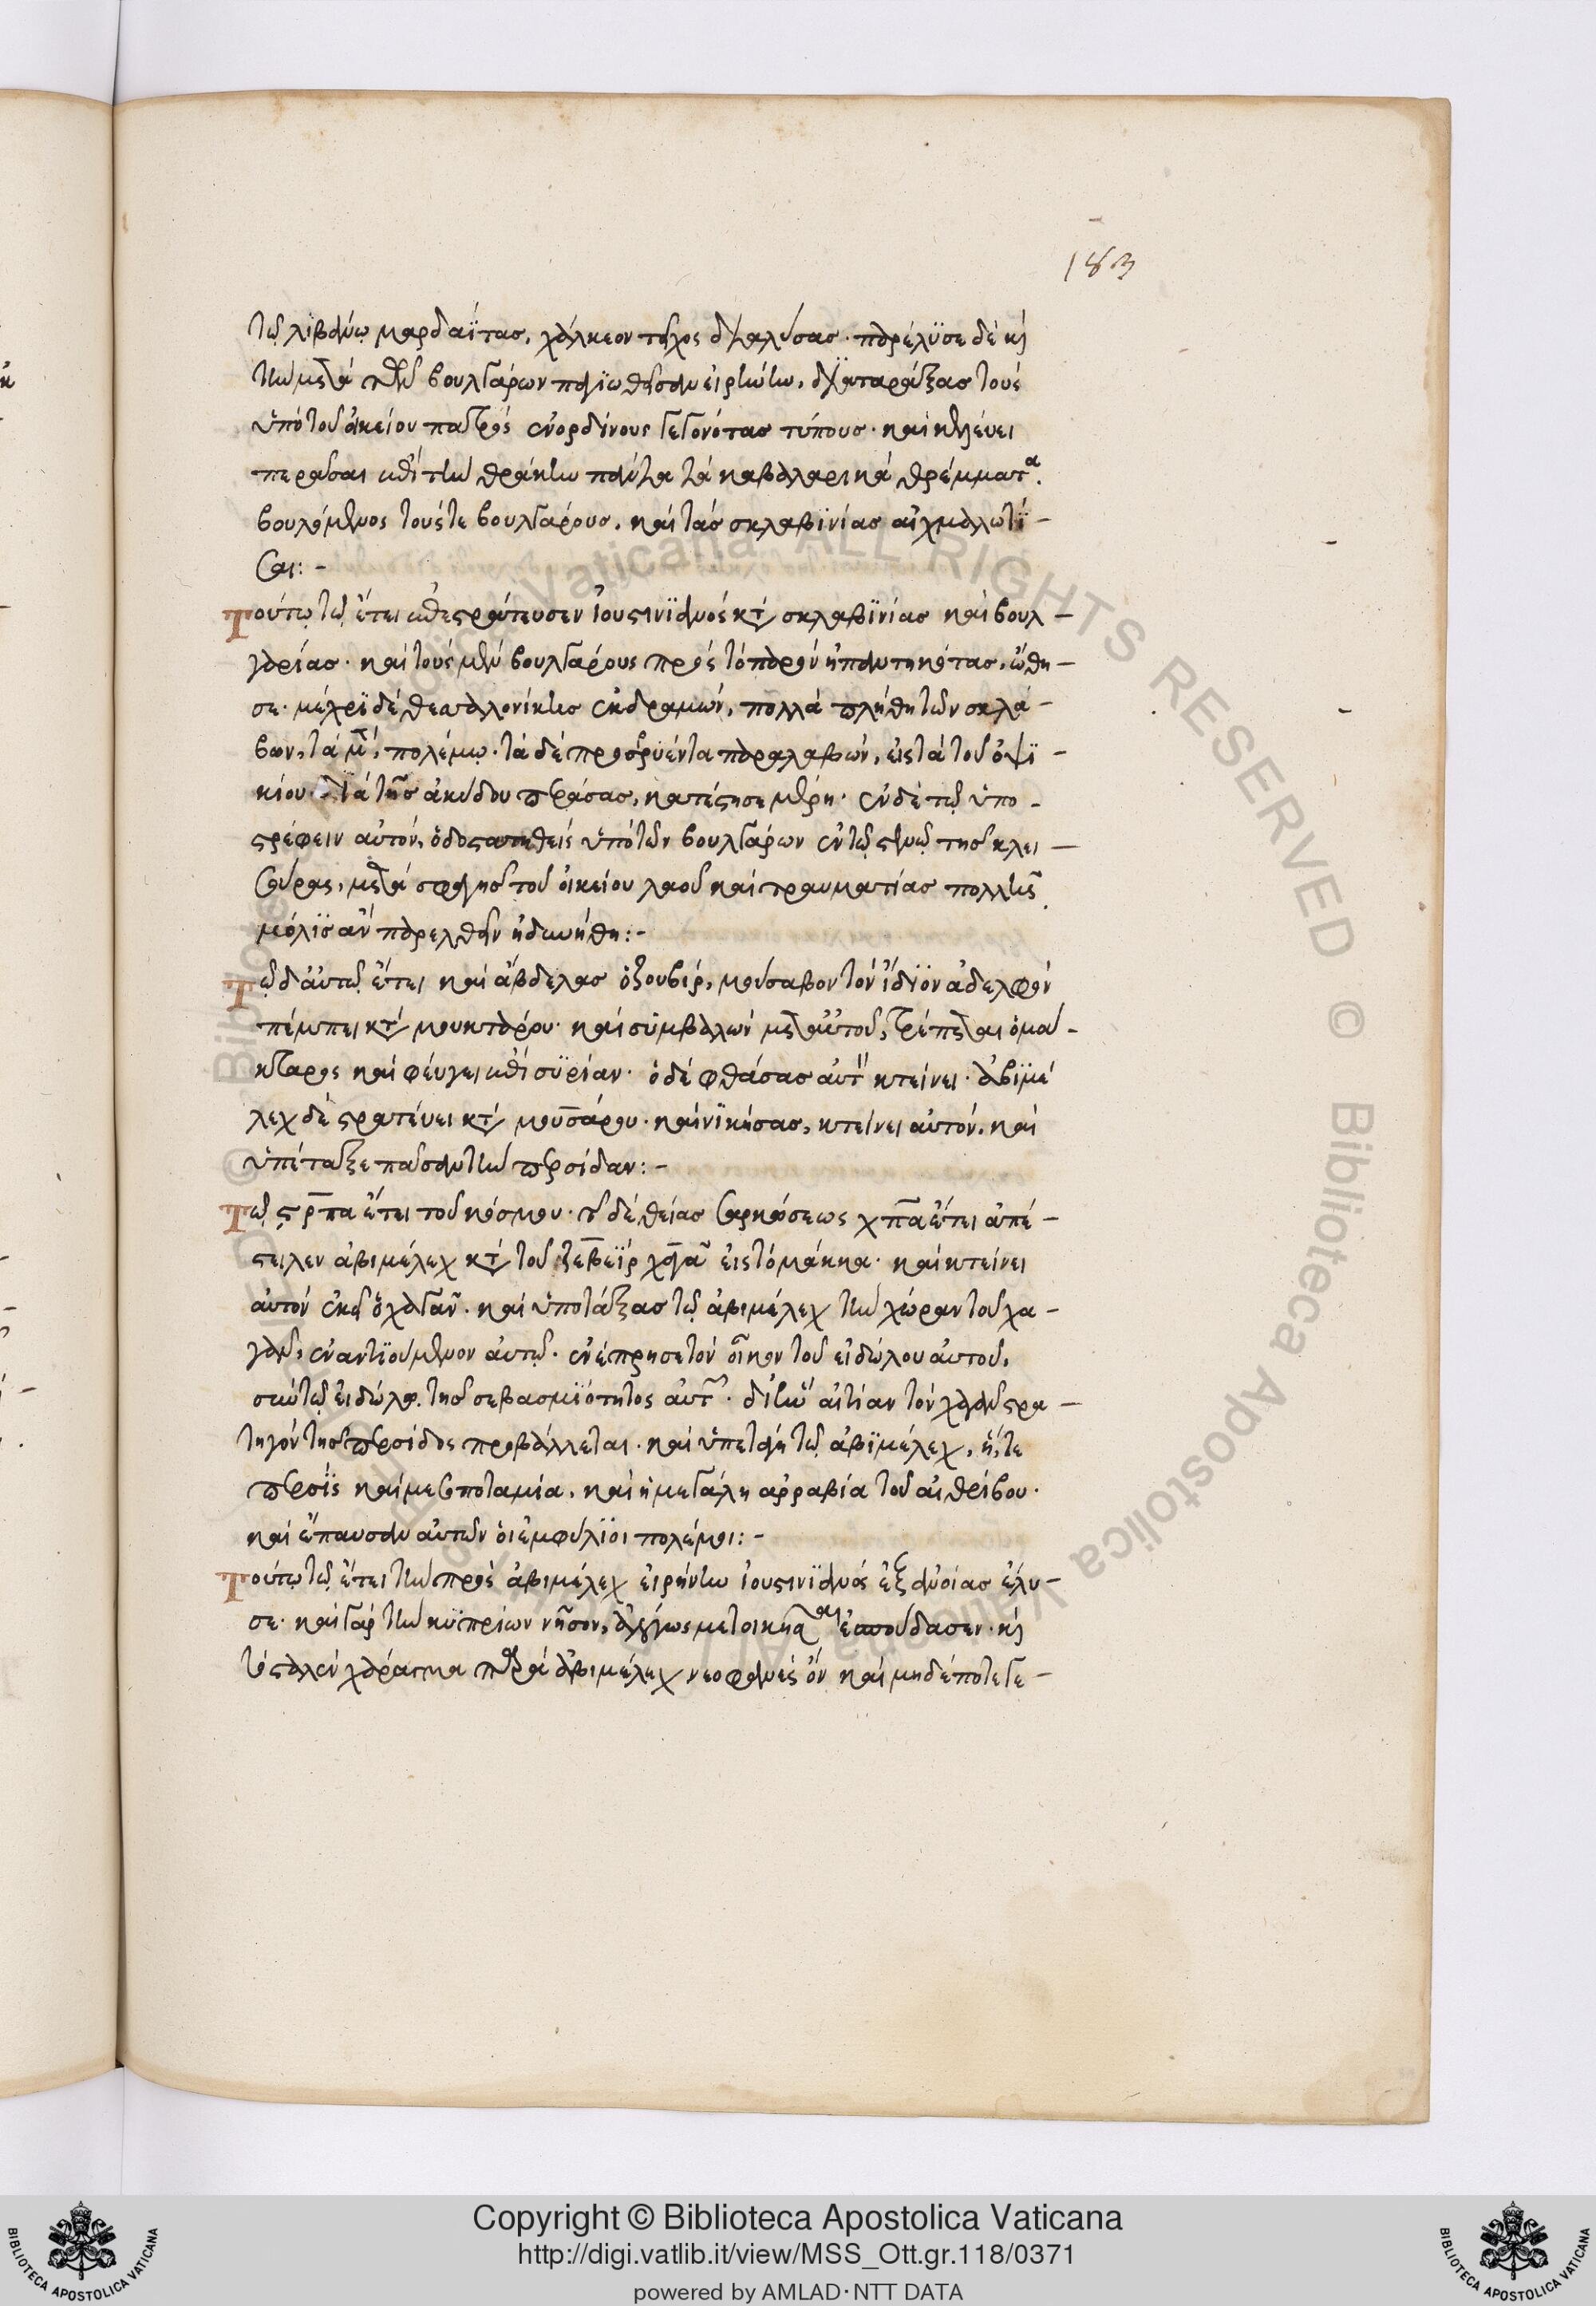 183
τῷ λιβάνῳ μαρδαΐτας, χάλκεον τεῖχος διαλύσας· παρέλϋσε δὲ κὶ
τὴν μετὰ τῶν βουλγάρων παγϊωθεῖσαν εἰρήνην, διαταράξας τοὺς
ὑπὸ τοῦ οἰκείου πατρὸς ἐνορδίνους γεγονότας τύπους· καὶ κελεύει
περᾶσαι ἐπὶ τὴν θράκην πάντα τὰ καβαλλαρικὰ θρέμματα.
βουλόμενος τούς τε βουλγάρους, καὶ τὰς σκλαβϊνίας αἰχμαλωτί –
σαι: –
Τούτῳ τῷ ἔτει ἐπεστράτευσεν ἰουστινϊανὸς κατὰ σκλαβϊνίας καὶ βουλ –
γαρίας· καὶ τοὺς μὲν βουλγάρους πρὸς τὸ παρὸν ὑπαντηκότας, ὤθη –
σε· μέχρϊ δὲ θεσσαλονίκης ἐκδραμὼν, πολλὰ πλήθη τῶν σκλά –
βων, τὰ μὲν, πολέμῳ· τὰ δὲ προσρϋέντα παραλαβὼν, εἰς τὰ τοῦ ὀψϊ –
κίου διὰ τῆς ἀβύδου περάσας, κατέστησε μέρη· ἐν δὲ τῷ ὑπο –
στρέφειν αὐτὸν, ὁδοστατηθεὶς ὑπὸ τῶν βουλγάρων ἐν τῷ στενῷ τῆς κλει –
σούρας, μετὰ σφαγῆς τοῦ οἰκείου λαοῦ καὶ τραυματίας πολλῆς
μόλϊς ἂν παρελθεῖν ἠδυνήθη: –
Τῷ δ' αὐτῷ ἔτει καὶ ἄβδελας ὁ ζουβὶρ, μούσαβον τὸν ἴδϊον ἀδελφὸν
πέμπει κατὰ μουκτάρου· καὶ σὺμβαλὼν μετ' αὐτοῦ, τρέπεται ὁ μου –
κτάρος καὶ φεύγει ἐπὶ σϋρίαν· ὁ δὲ φθάσας αὐτὸν κτείνει· ἀβϊμέ
λεχ δὲ στρατεύει κατὰ μουσάρου· καὶ νϊκήσας, κτείνει αὐτόν. καὶ
ὑπέταξε πᾶσαν τὴν περσίδαν: –
Τῷ ϛρπα ἔτει τοῦ κόσμου· τῆς δὲ θείας σαρκώσεως χπα ἔτει ἀπέ –
στειλεν ἀβιμέλεχ κατὰ τοῦ ζεβεΐρ χαγὰν εἰς τὸ μάκκα· καὶ κτείνει
αὐτὸν ἐκεῖ ὁ χαγάν. καὶ ὑποτάξας τῷ ἀβιμέλεχ τὴν χώραν τοῦ χα –
γὰν, ἐναντϊούμενον αὐτῷ· ἐνέπρησε τὸν οἶκον τοῦ εἰδώλου αὐτοῦ,
σὺν τῷ εἰδώλῳ τῆς σεβασμϊότητος αὐτοῦ· δι' ἣν αἰτίαν τὸν χαγὰν στρα –
τηγὸν τῆς περσίδος προβάλλεται· καὶ ὑπετάγη τῷ ἀβϊμέλεχ, ἥ, τε
περσὶς καὶ μεσοποταμία, καὶ ἡ μεγάλη ἀρραβία τοῦ αἰθρίβου·
καὶ ἔπαυσαν αὐτῶν οἱ ἐμφύλϊοι πολέμοι: –
Τούτῳ τῷ ἔτει τὴν πρὸς ἀβιμέλεχ εἰρήνην ἰουστινϊανὸς ἐξ ἀνοίας ἔλυ –
σε· καὶ γὰρ τὴν κϋπρίων νῆσον, ἀλόγως μετοικῆσαι ἐσπούδασεν· κὶ
τὸ σταλὲν χάραγμα παρὰ ἀβιμέλεχ νεοφανὲς ὂν καὶ μηδέποτε γε –